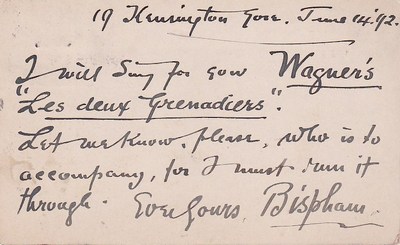 19 Kensington Gore. June 14. 92.
I will sing for you Wagner's
"Les deux Grenadiers".
Let me know, please, who is to
accompany, for I must run it
through. Ever yours, Bispham.